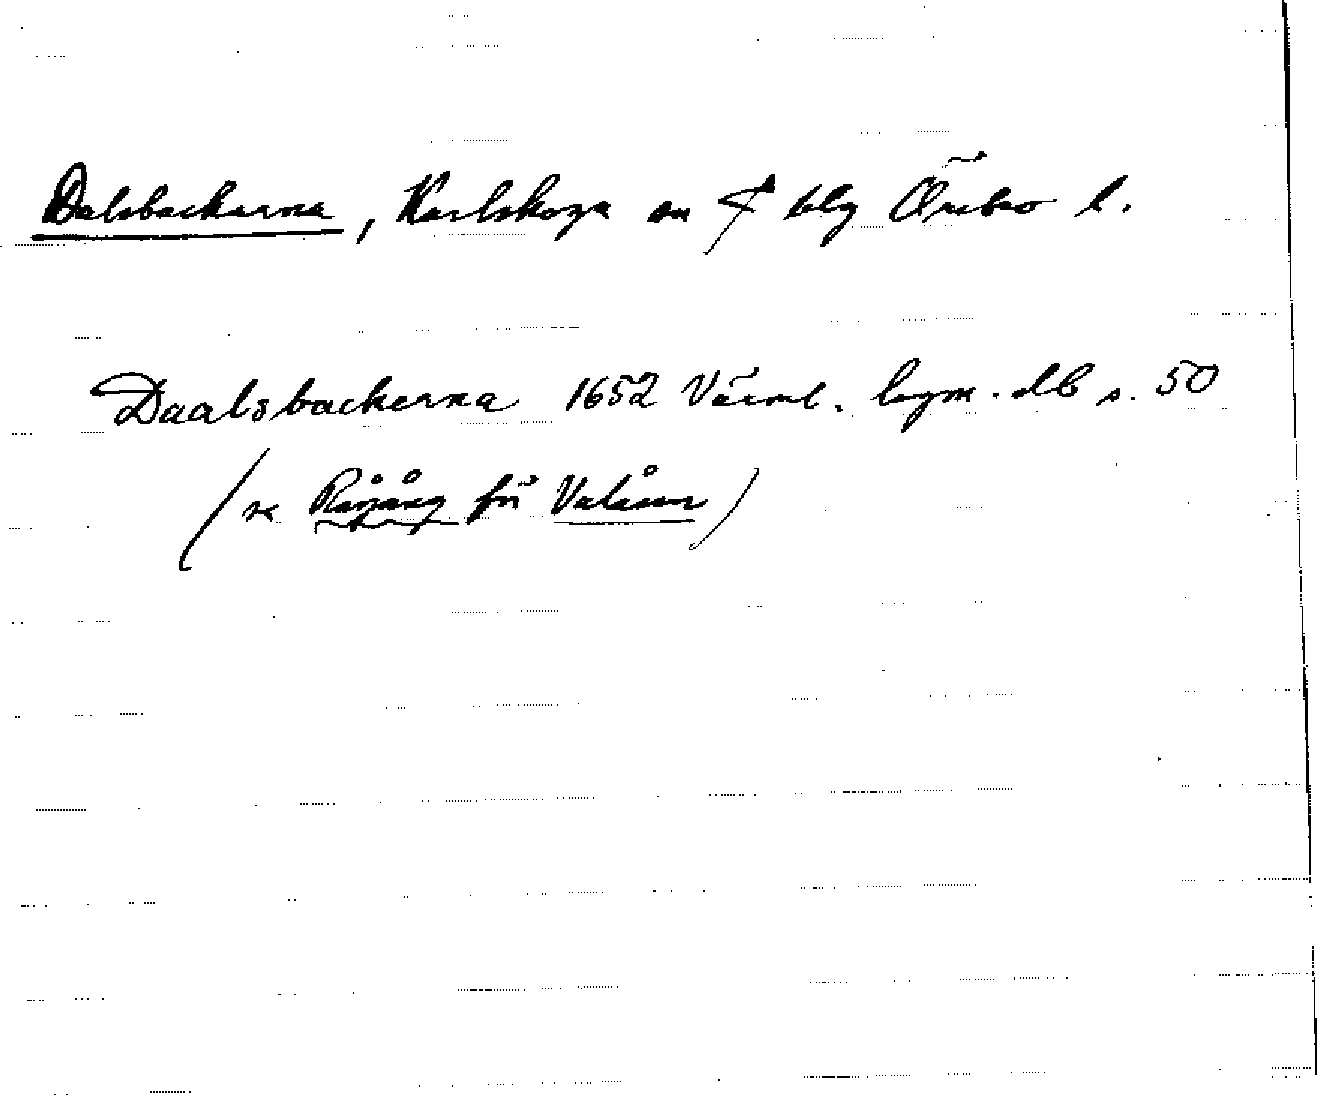 Dalsbackarna, Karlskoga sn f blg Örebro l.
Daalsbackerna 1652 Värml. lagm. db s. 50
(se Rågång för Valåsen)